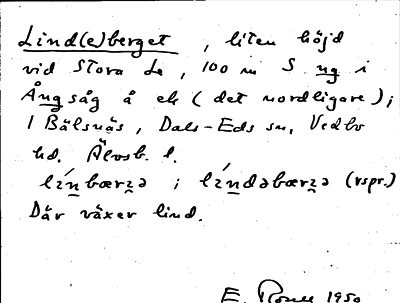 Lind(e)berget, liten höjd
vid Stora Le, 100 m S ng i
Ångsåg å ek (det nordligare);
i Bälsnäs, Dals-Eds sn, Vedbo
hd. Älvsb. l.
lɪ́nbærzə ; lɪ́ndəbærzə (rspr.)
Där växer lind.
E. 1950